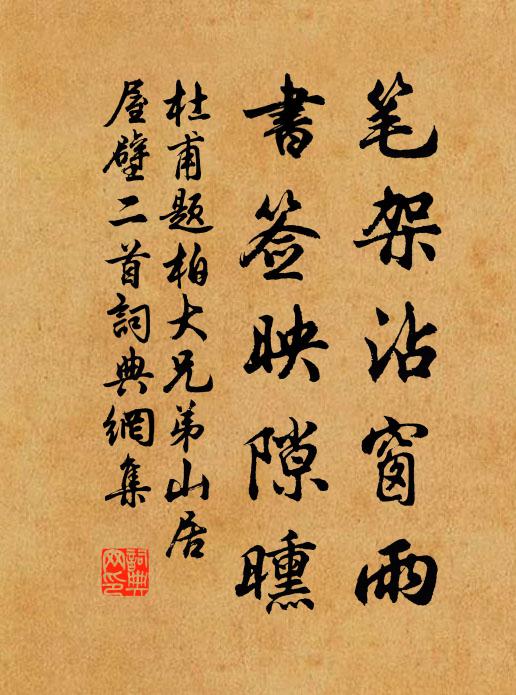 笔架沾窗雨
書签映隙曛
杜甫题柏大兄弟山居
屋壁二首詞典網集
詞典